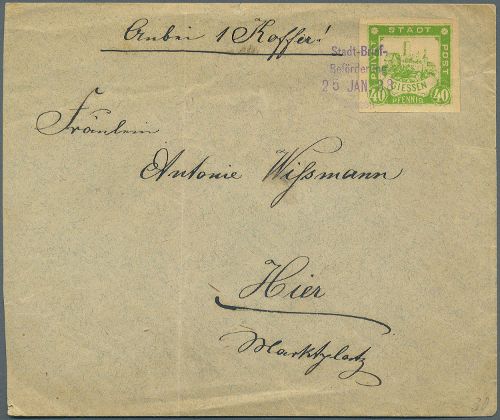 Anbei 1 Koffer!
STADT
PRIVAT POST
GIESSEN
40 40
PFENNIG
Stadt-Brief-
Beförderung
25 JAN
Fräulein
Antonie Wissmann
Hier
Marktplatz